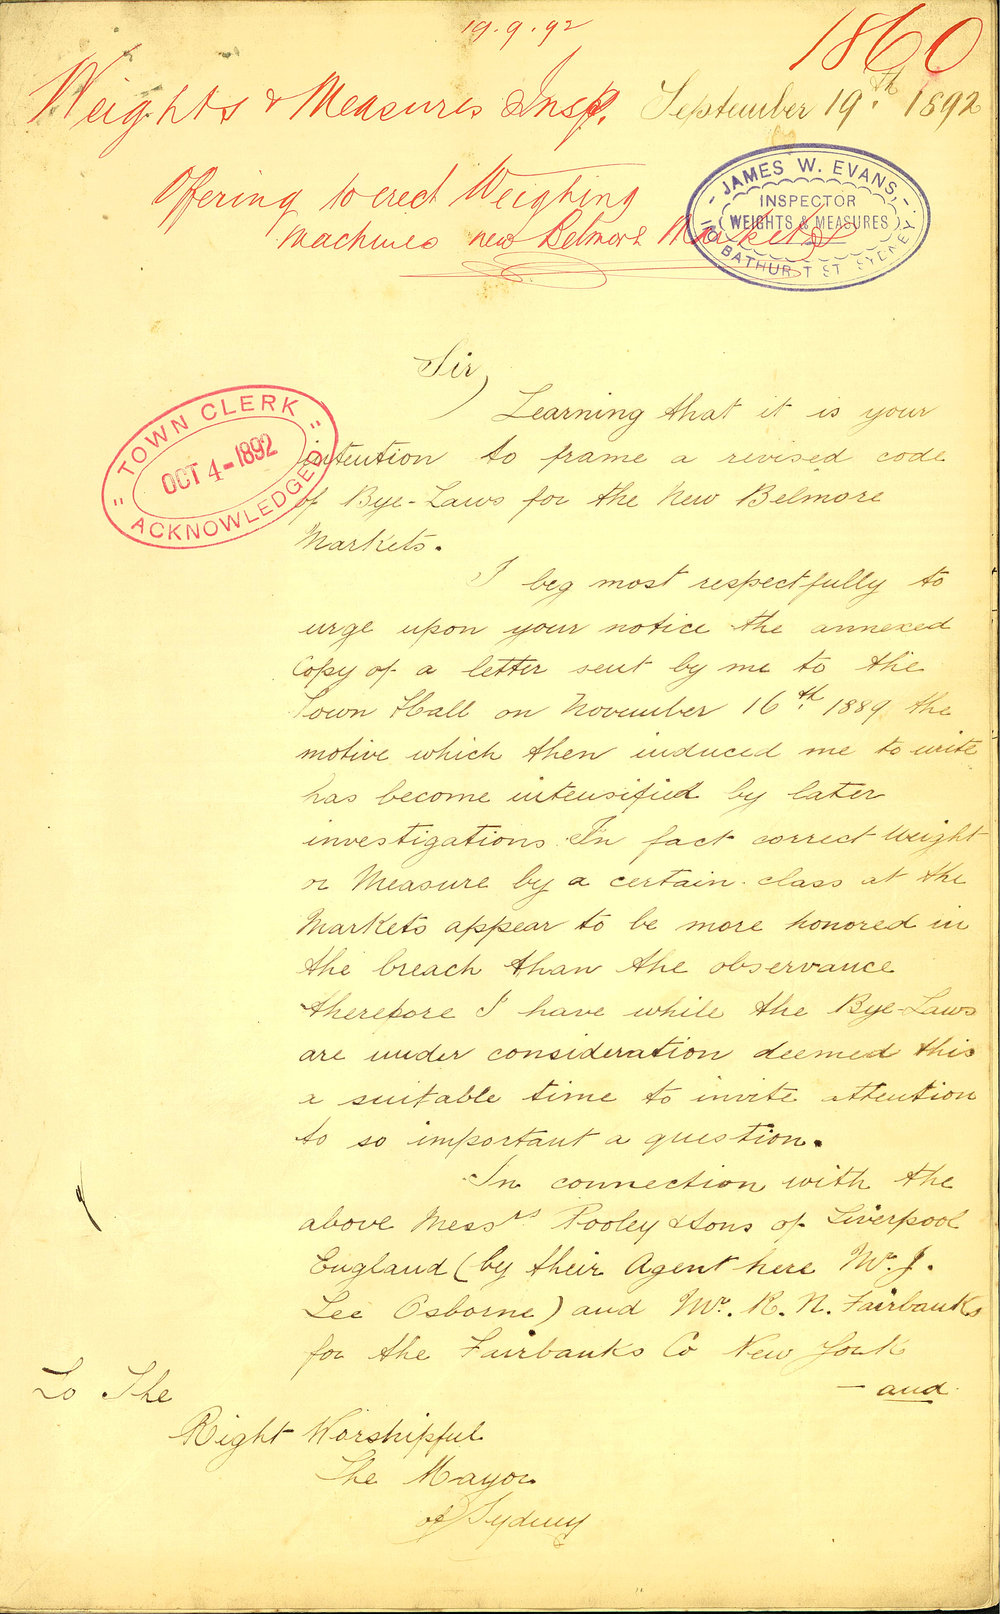 19.9.92
1860
Weights & Measures Insp.
September 19th. 1892
Offering to erect Weighing
Machines new Belmore Markets
JAMES W. EVANS,
INSPECTOR
WEIGHTS & MEASURES
BATHURST ST SYDNEY
Sir,
TOWN CLERK
OCT 4-1892
ACKNOWLEDGED
Learning that it is your
intention to frame a revised code
of Bye-Laws for the New Belmore
Markets.
I beg most respectfully to
urge upon your notice the annexed
Copy of a letter sent by me to the
Town Hall on November 16th. 1889 the
motive which then induced me to write
has become intensified by later
investigations. In fact correct Weight
or Measure by a certain class at the
Markets appear to be more honored in
the breach than the observance
therefore I have while the Bye-Laws
are under consideration deemed this
a suitable time to invite attention
to so important a question.
In connection with the
above Messrs Pooley & Sons of Liverpool
England (by their Agent here Mr. J.
Lee Osborne) and Mr. R. N. Fairbanks
for the Fairbanks Co New York
- and
To The
Right Worshipful
The Mayor
of Sydney